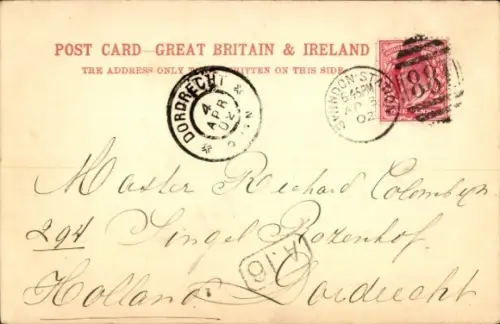 POST CARD—GREAT BRITAIN & IRELAND
THE ADDRESS ONLY TO BE WRITTEN ON THIS SIDE
DORDRECHT
4
APR
02
SWINDON·STATION
6.45PM
AP 3
02
Master Richard Colombijn
294 Singel Rozenhof.
A.16
Holland. Dordrecht